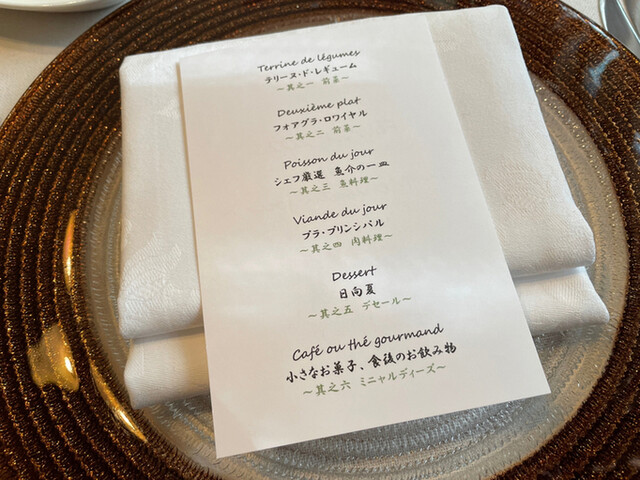 Terrine de légumes
テリーヌ・ド・レギューム
～其之一 前菜～
Deuxième plat
フォアグラ・ロワイヤル
～其之二 前菜～
Poisson du jour
シェフ厳選 魚介の一皿
～其之三 魚料理～
Viande du jour
プラ・プリンシパル
～其之四 肉料理～
Dessert
日向夏
～其之五 デセール～
Café ou thé gourmand
小さなお菓子、食後のお飲み物
～其之六 ミニャルディーズ～